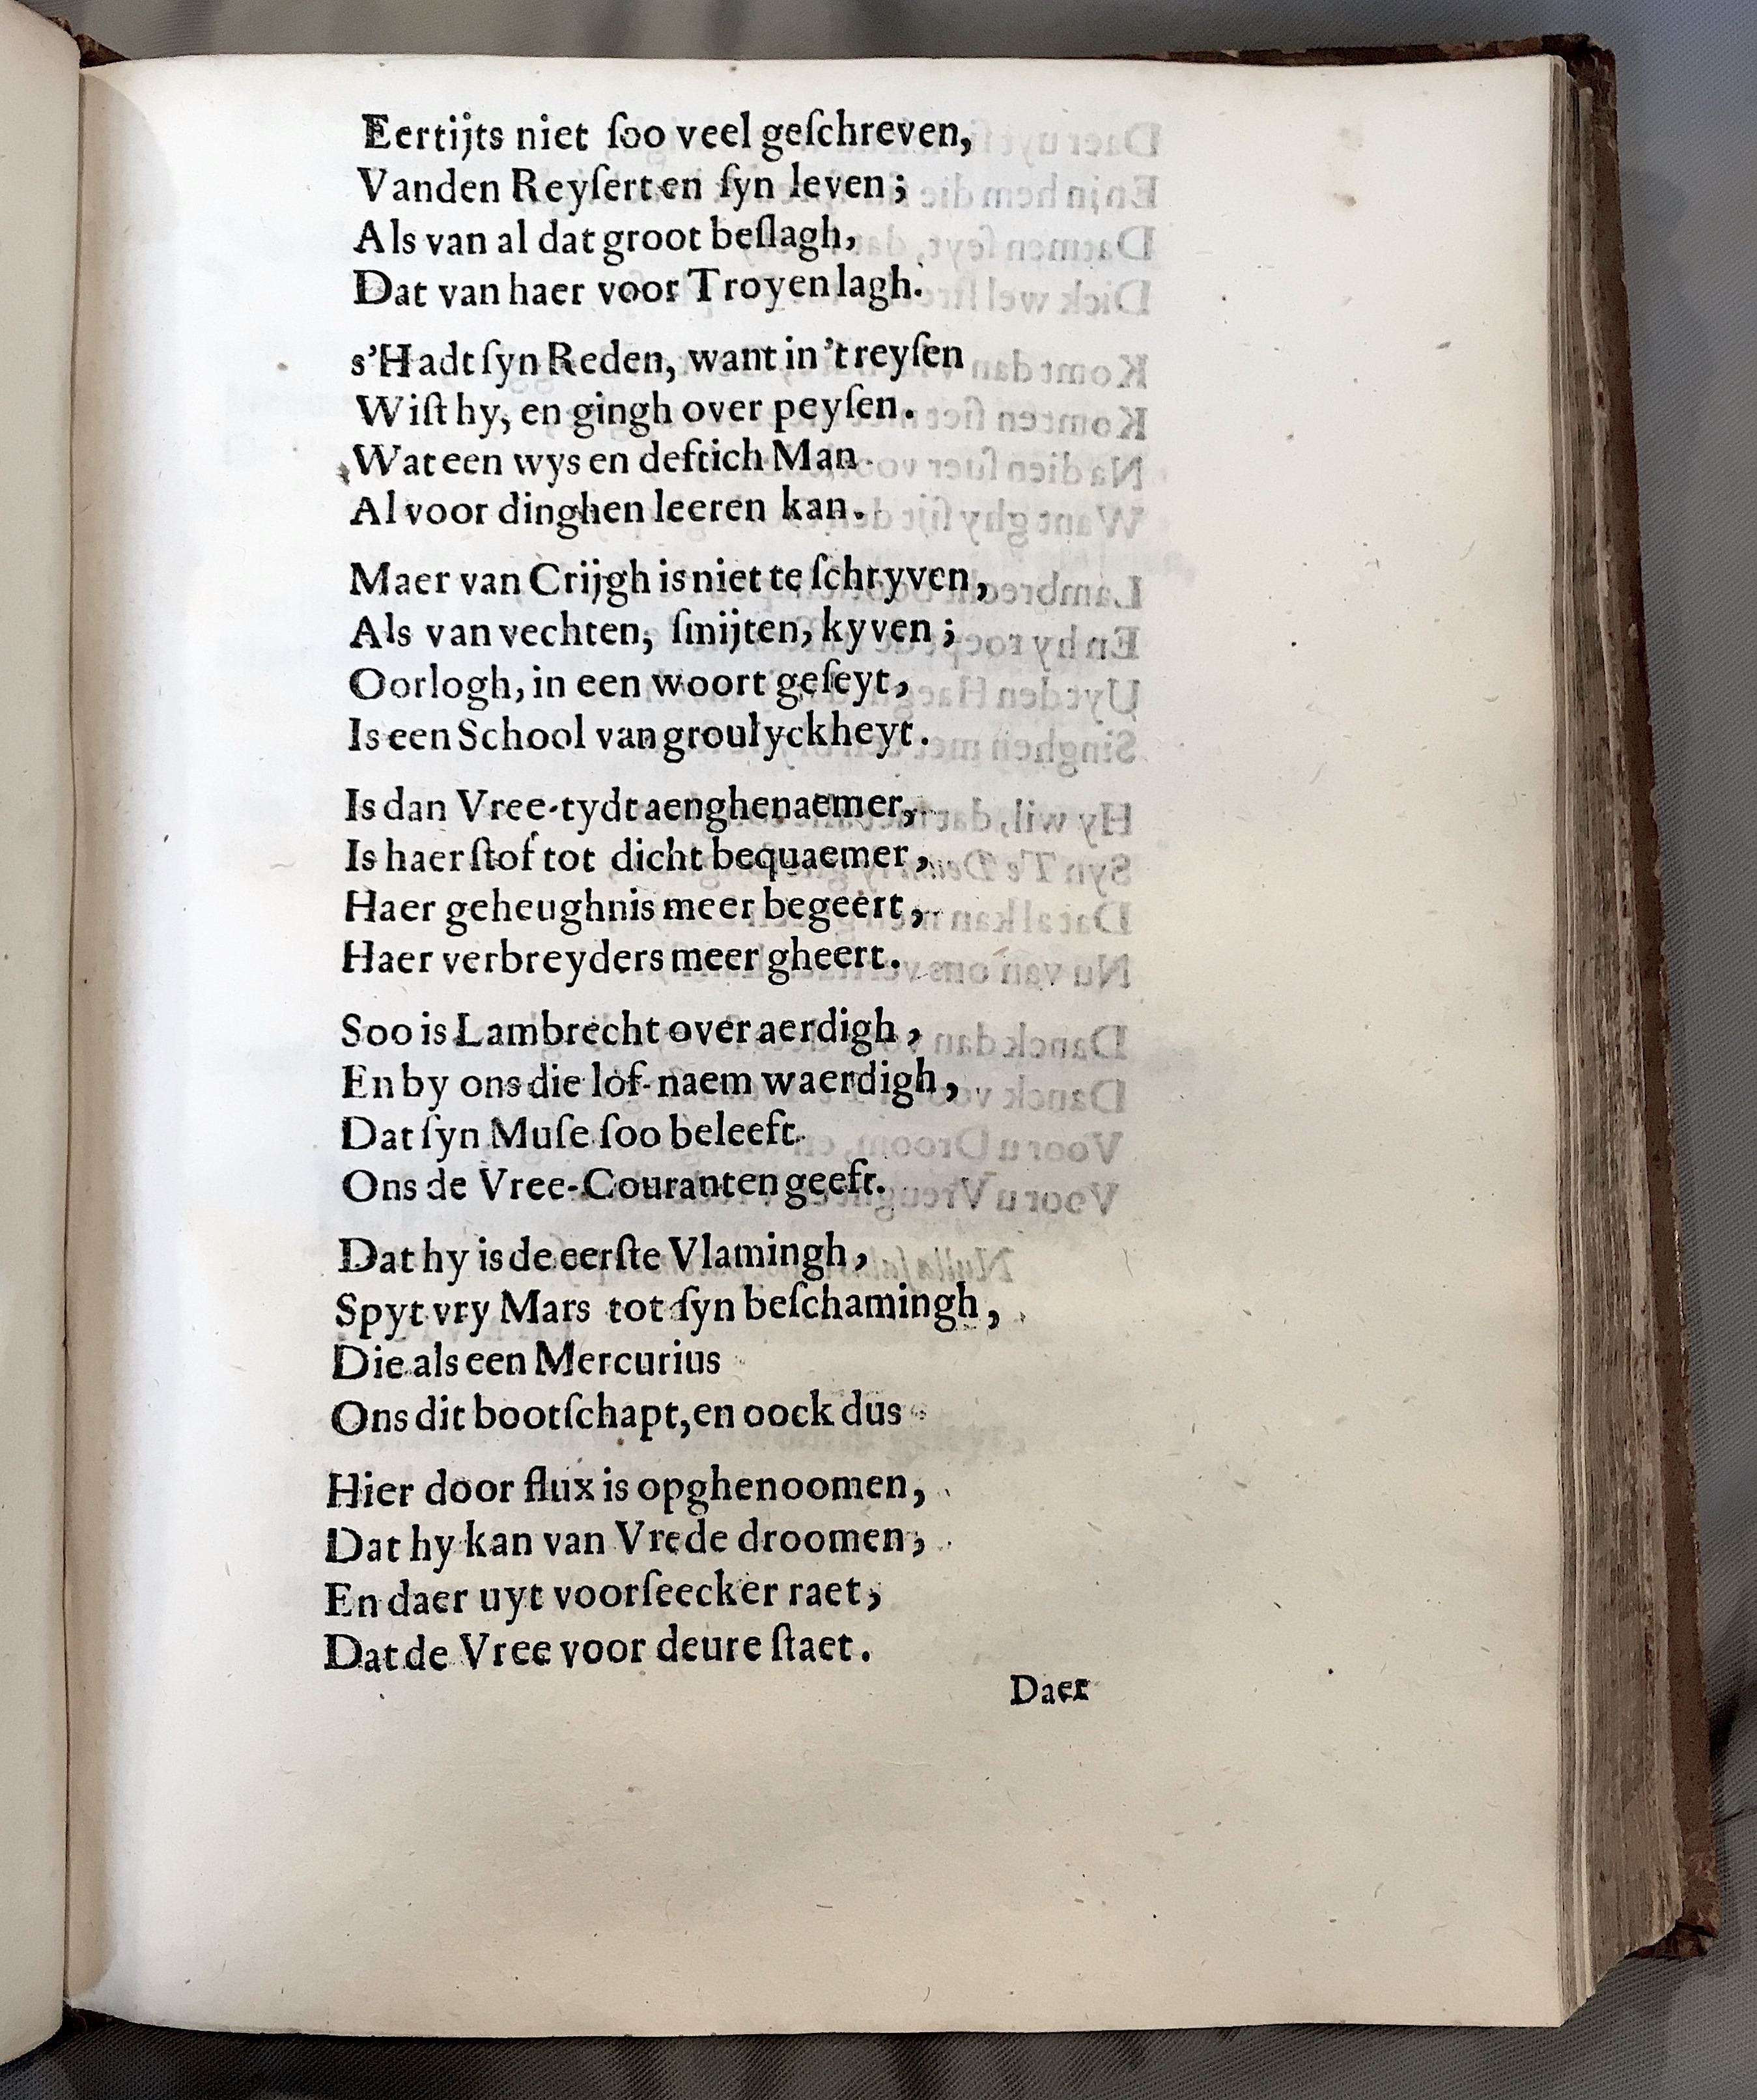 Eertijts niet ſoo veel geſchreven,
Vanden Reyſert en ſyn leven;
Als van al dat groot beſlagh,
Dat van haer voor Troyen lagh.
s'Hadt ſyn Reden, want in 't reyſen
Wiſt hy, en gingh over peyſen.
Wat een wys en deftich Man
Al voor dinghen leeren kan.
Maer van Crijgh is niet te ſchryven,
Als van vechten, ſmijten, kyven;
Oorlogh, in een woort geſeyt,
Is een School van groulyckheyt.
Is dan Vree-tydt aenghenaemer,
Is haer ſtof tot dicht bequaemer,
Haer geheughnis meer begeert,
Haer verbreyders meer gheert.
Soo is Lambrecht over aerdigh,
En by ons die lof-naem waerdigh,
Dat ſyn Muſe ſoo beleeft
Ons de Vree-Couranten geeft.
Dat hy is de eerſte Vlamingh,
Spyt vry Mars tot ſyn beſchamingh,
Die als een Mercurius
Ons dit bootſchapt, en oock dus
Hier door flux is opghenoomen,
Dat hy kan van Vrede droomen;
En daer uyt voorſeecker raet,
Dat de Vree voor deure ſtaet.
Daer